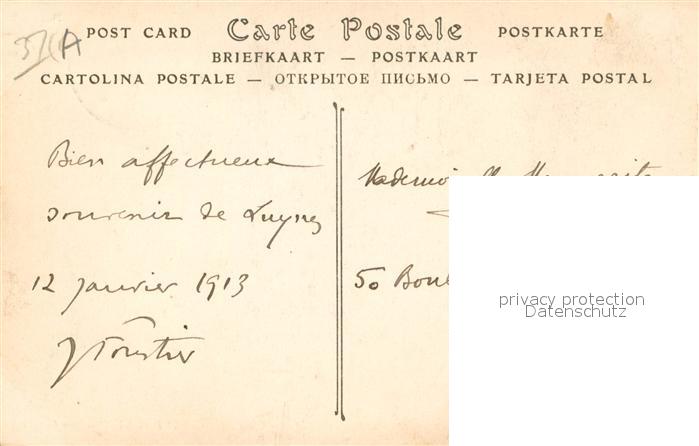 37(A
POST CARD Carte Postale POSTKARTE
BRIEFKAART — POSTKAART
CARTOLINA POSTALE — ОТКРЫТОЕ ПИСЬМО — TARJETA POSTAL
Bien affectueux
souvenir de Luynes
12 Janvier 1913
50 Boul
privacy protection
Datenschutz